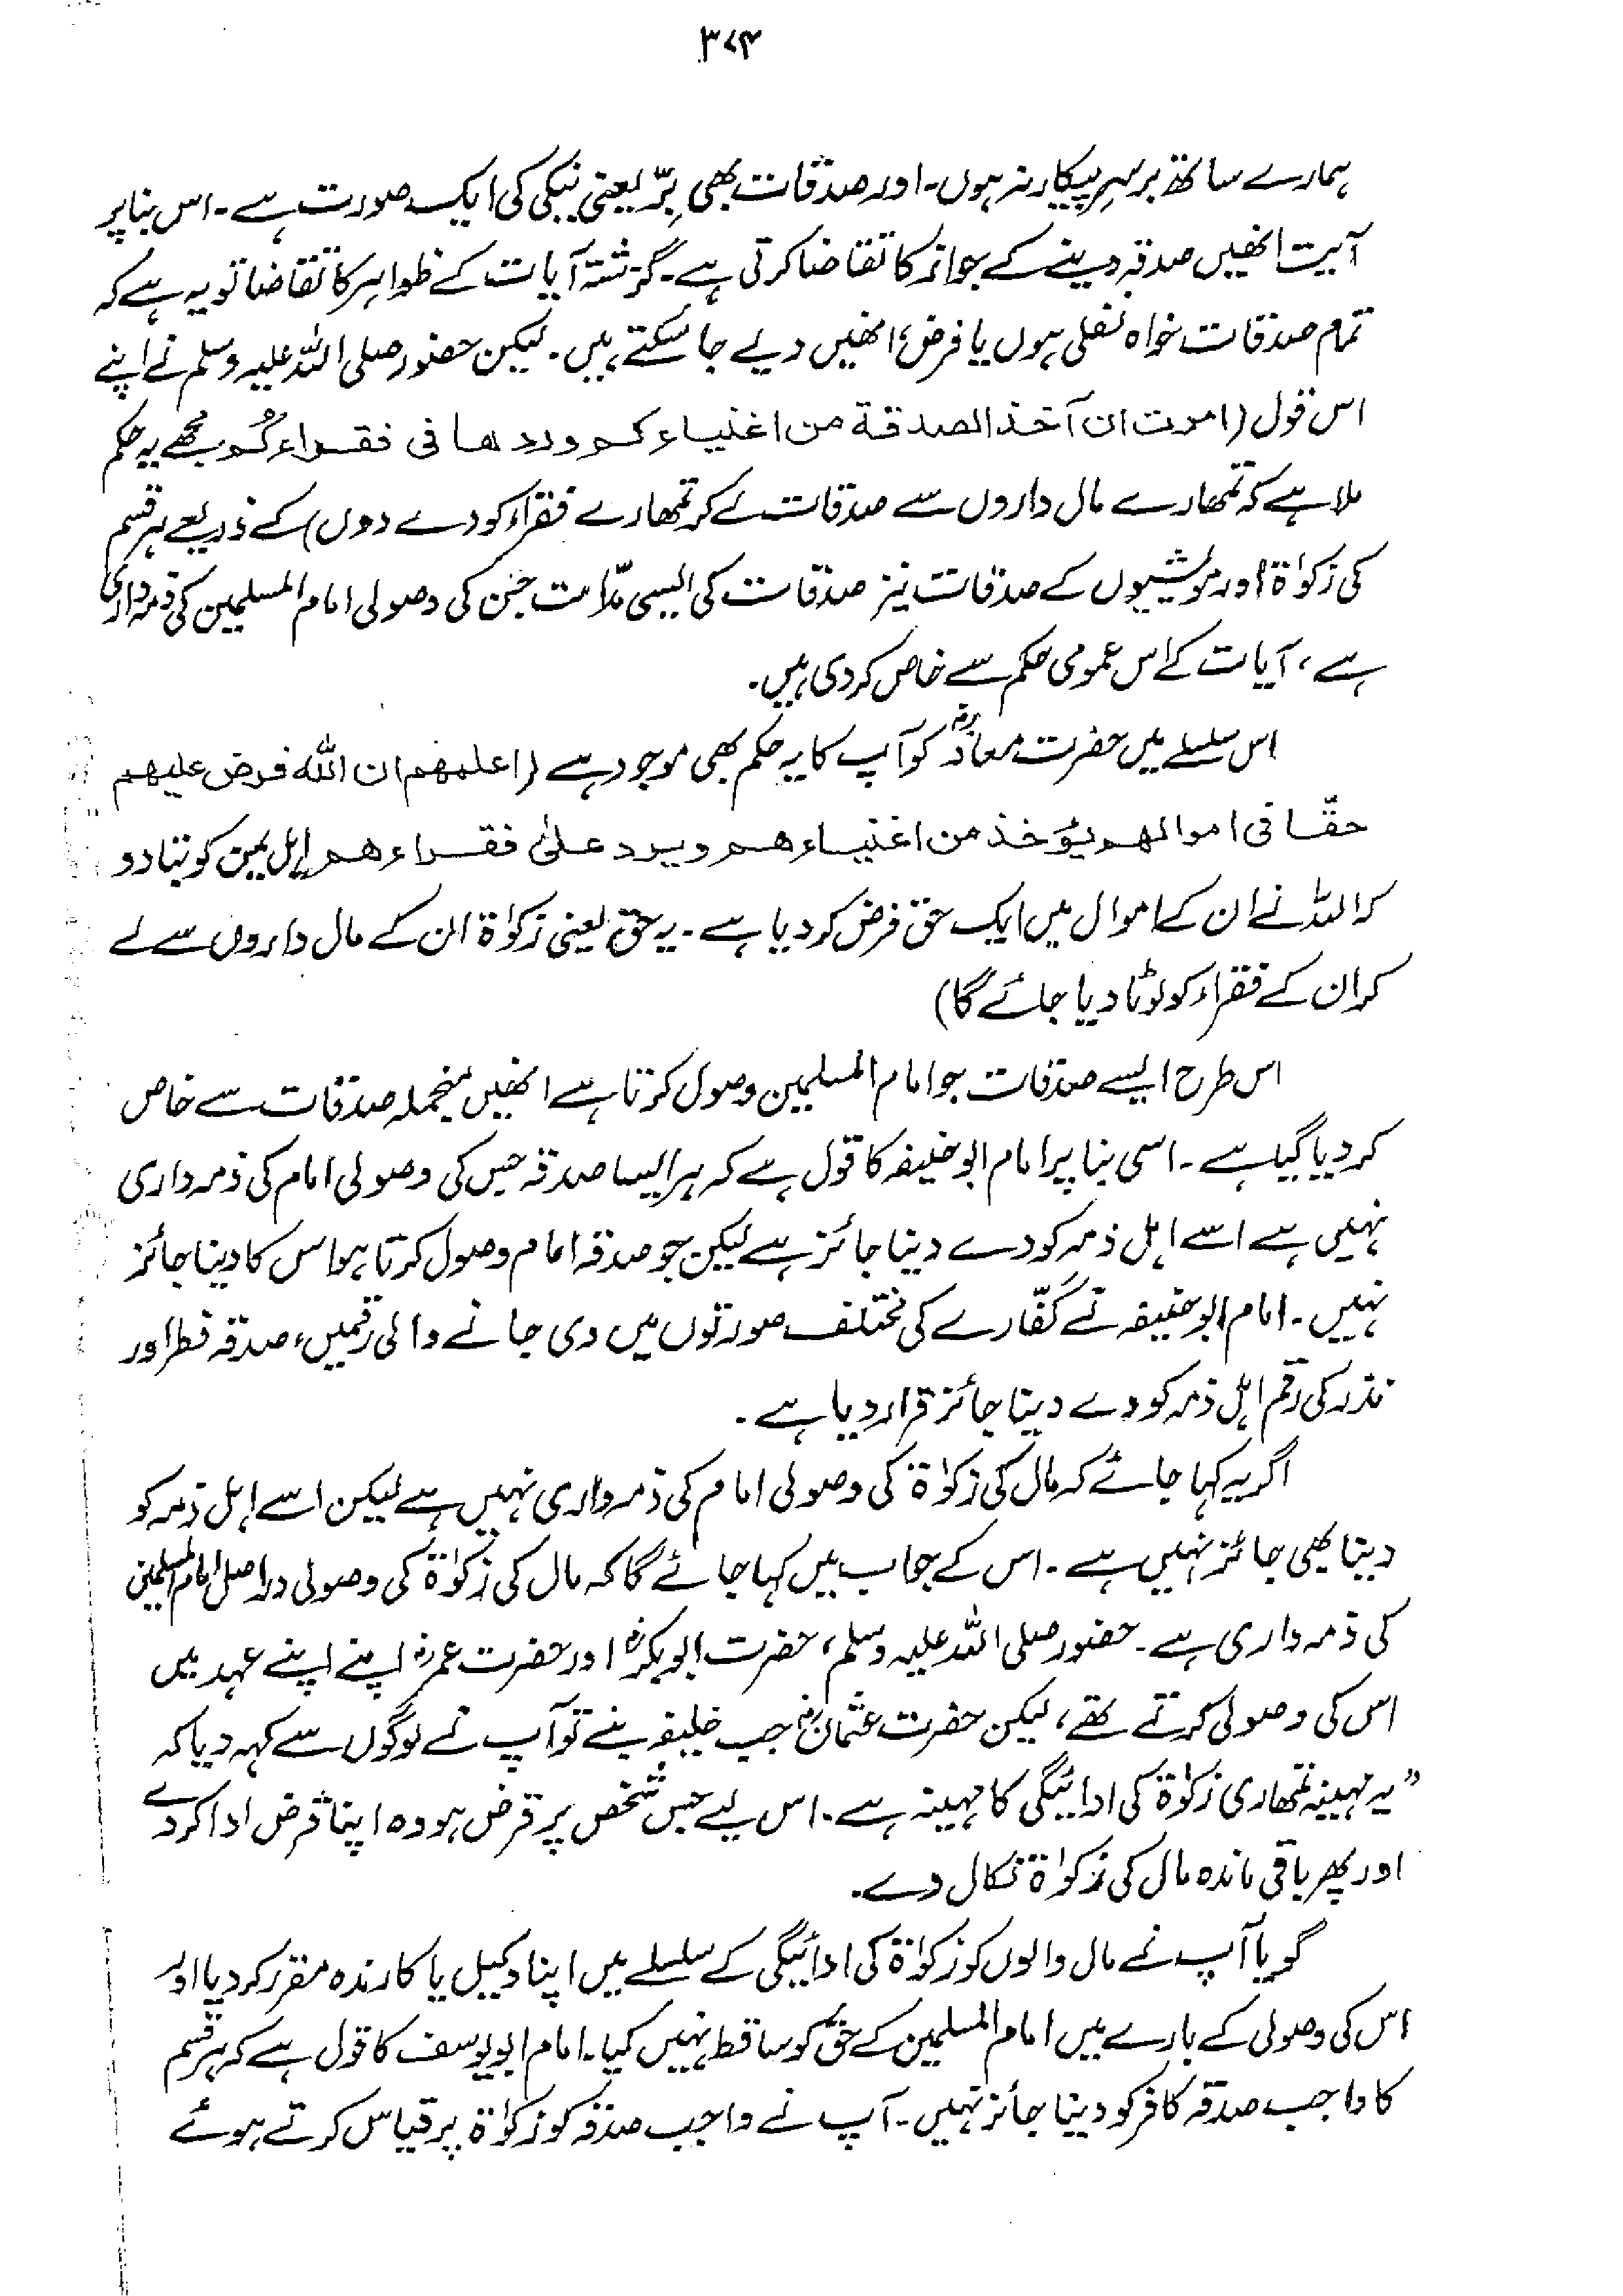 ۳۷۴
ہمارے ساتھ برسرِ پیکار نہ ہوں۔ اور صدقات بھی بِرّ یعنی نیکی کی ایک صورت ہے۔ اس بنا پر
آیت انھیں صدقہ دینے کے جواز کا تقاضا کرتی ہے۔ گزشتہ آیات کے ظواہر کا تقاضا تو یہ ہے کہ
تمام صدقات خواہ نفلی ہوں یا فرض، انھیں دیے جا سکتے ہیں۔ لیکن حضور صلی اللہ علیہ وسلم نے اپنے
اس قول (امرت ان آخذ الصدقة من اغنیاءکم وردھا فی فقراءکم مجھے یہ حکم
ملا ہے کہ تمھارے مال داروں سے صدقات لے کر تمھارے فقراء کو دے دوں) کے ذریعے ہر قسم
کی زکوٰۃ اور مویشیوں کے صدقات نیز صدقات کی ایسی مدّات جن کی وصولی امام المسلمین کی ذمہ داری
ہے، آیات کے اس عمومی حکم سے خاص کر دی ہیں۔
اس سلسلے میں حضرت معاذؓ کو آپ کا یہ حکم بھی موجود ہے (اعلمھم ان اللہ فرض علیھم
حقّا فی اموالھم یؤخذ من اغنیاءھم ویرد علیٰ فقراءھم اہل یمن کو بتا دو
کہ اللہ نے ان کے اموال میں ایک حق فرض کر دیا ہے۔ یہ حق یعنی زکوٰۃ ان کے مال داروں سے لے
کر ان کے فقراء کو لوٹا دیا جائے گا)
اس طرح ایسے صدقات جو امام المسلمین وصول کرتا ہے انھیں منجملہ صدقات سے خاص
کر دیا گیا ہے۔ اسی بنا پر امام ابوحنیفہ کا قول ہے کہ ہر ایسا صدقہ جس کی وصولی امام کی ذمہ داری
نہیں ہے اسے اہل ذمہ کو دے دینا جائز ہے لیکن جو صدقہ امام وصول کرتا ہو اس کا دینا جائز
نہیں۔ امام ابوحنیفہ نے کفّارے کی مختلف صورتوں میں دی جانے والی رقمیں، صدقہ فطر اور
نذر کی رقم اہل ذمہ کو دے دینا جائز قرار دیا ہے۔
اگر یہ کہا جائے کہ مال کی زکوٰۃ کی وصولی امام کی ذمہ داری نہیں ہے لیکن اسے اہل ذمہ کو
دینا بھی جائز نہیں ہے۔ اس کے جواب میں کہا جائے گا کہ مال کی زکوٰۃ کی وصولی دراصل امام المسلمین
کی ذمہ داری ہے۔ حضور صلی اللہ علیہ وسلم، حضرت ابوبکرؓ اور حضرت عمرؓ اپنے اپنے عہد میں
اس کی وصولی کرتے تھے، لیکن حضرت عثمانؓ جب خلیفہ بنے تو آپ نے لوگوں سے کہہ دیا کہ
"یہ مہینہ تمھاری زکوٰۃ کی ادائیگی کا مہینہ ہے۔ اس لیے جس شخص پر قرض ہو وہ اپنا قرض ادا کر دے
اور پھر باقی ماندہ مال کی زکوٰۃ نکال دے۔
گویا آپ نے مال والوں کو زکوٰۃ کی ادائیگی کے سلسلے میں اپنا وکیل یا کارندہ مقرر کر دیا اور
اس کی وصولی کے بارے میں امام المسلمین کے حق کو ساقط نہیں کیا۔ امام ابویوسف کا قول ہے کہ ہر قسم
کا واجب صدقہ کافر کو دینا جائز نہیں۔ آپ نے واجب صدقہ کو زکوٰۃ پر قیاس کرتے ہوئے